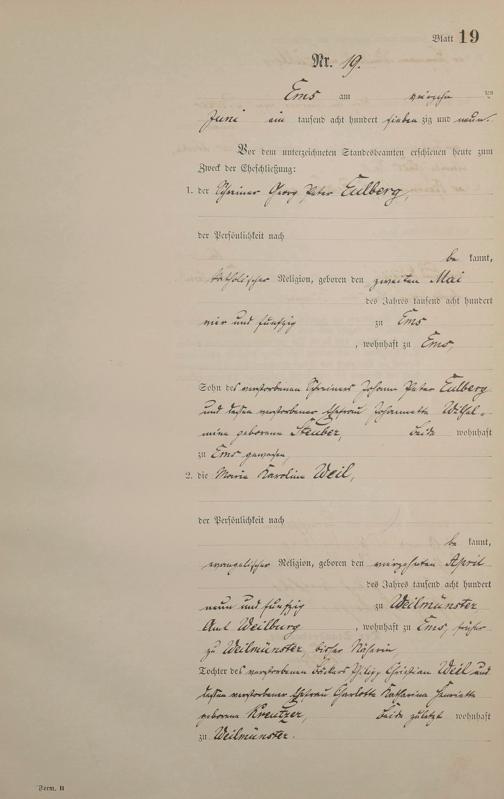 Blatt 19
Nr. 19.
Ems am vierzehn ten
Juni ein tausend acht hundert sieben zig und neun.
Vor dem unterzeichneten Standesbeamten erschienen heute zum
Zweck der Eheschließung:
1. der Schreiner Georg Peter Eulberg,
der Persönlichkeit nach
be kannt,
katholischer Religion, geboren den zweiten Mai
des Jahres tausend acht hundert
vier und fünfzig zu Ems
, wohnhaft zu Ems,
Sohn des verstorbenen Schreiners Johann Peter Eulberg
und dessen verstorbener Ehefrau Johannetta Wilhel-
mine geborene Steuber, beide wohnhaft
zu Ems gewesen,
2. die Maria Karolina Weil,
der Persönlichkeit nach
be kannt,
evangelischer Religion, geboren den vierzehnten April
des Jahres tausend acht hundert
neun und fünfzig zu Weilmünster
Amt Weilburg , wohnhaft zu Ems, früher
zu Weilmünster, bisher Näherin,
Tochter des verstorbenen Bäckers Philipp Christian Weil und
dessen verstorbener Ehefrau Charlotta Katharina Henrietta
geborene Kreutzer, beide zuletzt wohnhaft
zu Weilmünster.
Form. B